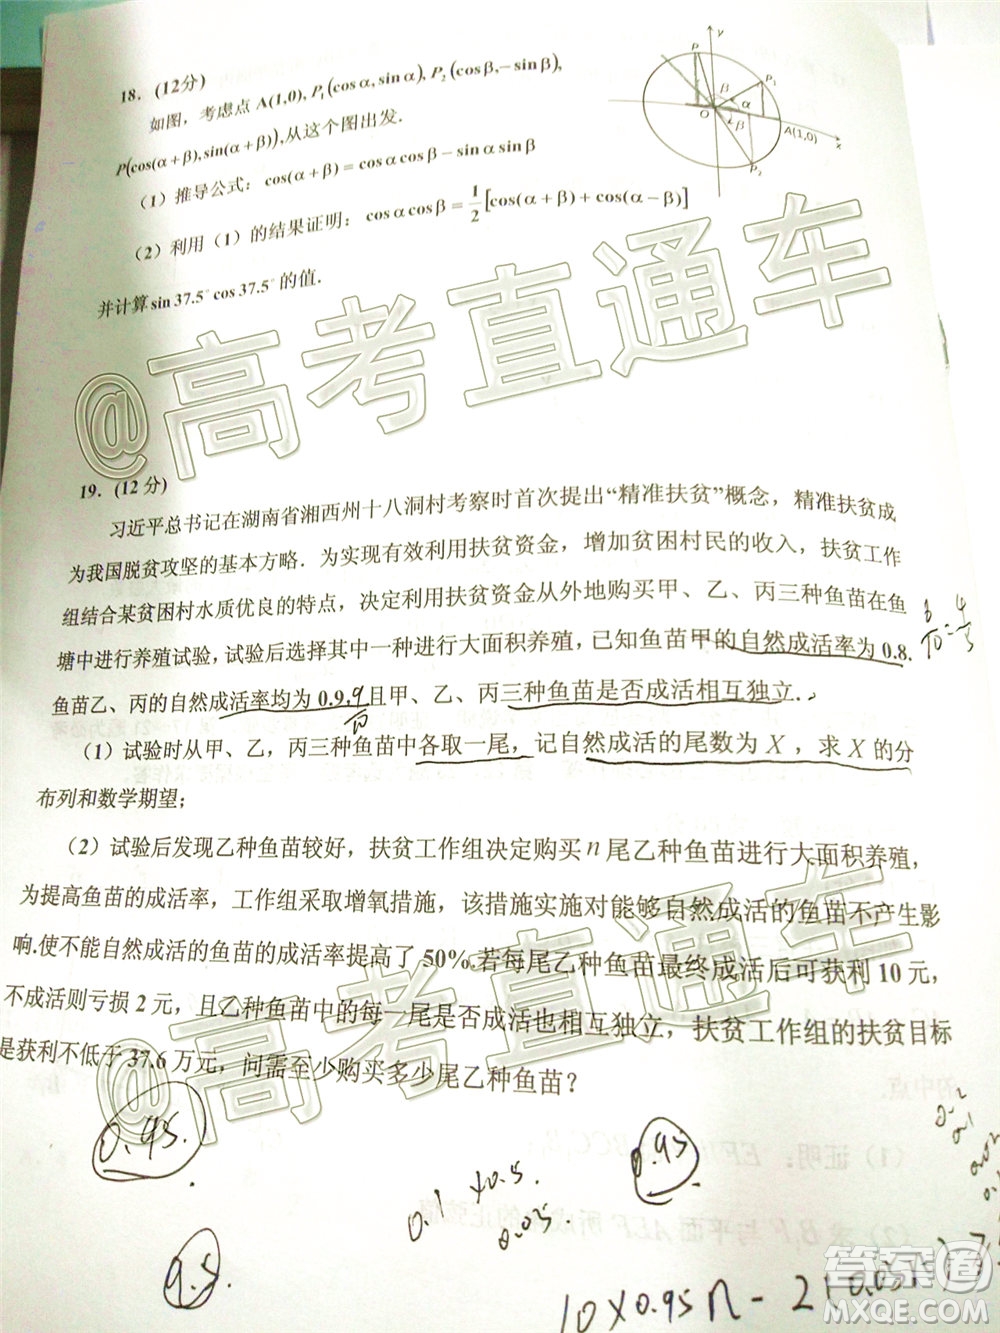 18. (12分)
如图，考虑点 A(1,0), P₁(cosα,sinα), P₂(cosβ,−sinβ),
P(cos(α+β),sin(α+β)),从这个图出发.
（1）推导公式：cos(α+β)=cosαcosβ−sinαsinβ
（2）利用（1）的结果证明：cosαcosβ=1/2[cos(α+β)+cos(α−β)]
并计算sin37.5°cos37.5°的值.
y
P
P₁
β
α
O
β
A(1,0)
x
P₂
@高考直通车
19. (12分)
习近平总书记在湖南省湘西州十八洞村考察时首次提出“精准扶贫”概念，精准扶贫成
为我国脱贫攻坚的基本方略．为实现有效利用扶贫资金，增加贫困村民的收入，扶贫工作
组结合某贫困村水质优良的特点，决定利用扶贫资金从外地购买甲、乙、丙三种鱼苗在鱼
塘中进行养殖试验，试验后选择其中一种进行大面积养殖，已知鱼苗甲的自然成活率为0.8.
8/10=4/5
鱼苗乙、丙的自然成活率均为0.9,且甲、乙、丙三种鱼苗是否成活相互独立.
9/10
（1）试验时从甲、乙，丙三种鱼苗中各取一尾，记自然成活的尾数为 X，求 X 的分
布列和数学期望；
（2）试验后发现乙种鱼苗较好，扶贫工作组决定购买 n 尾乙种鱼苗进行大面积养殖，
为提高鱼苗的成活率，工作组采取增氧措施，该措施实施对能够自然成活的鱼苗不产生影
响.使不能自然成活的鱼苗的成活率提高了 50%.若每尾乙种鱼苗最终成活后可获利 10 元，
不成活则亏损 2 元，且乙种鱼苗中的每一尾是否成活也相互独立，扶贫工作组的扶贫目标
是获利不低于 37.6 万元，问需至少购买多少尾乙种鱼苗？
@高考直通车
0.95.
0.1 ×0.5.
0.05
0.95
9.5
0.2
0.1
0.02
10×0.95n−2
答案圈
MXQE.COM